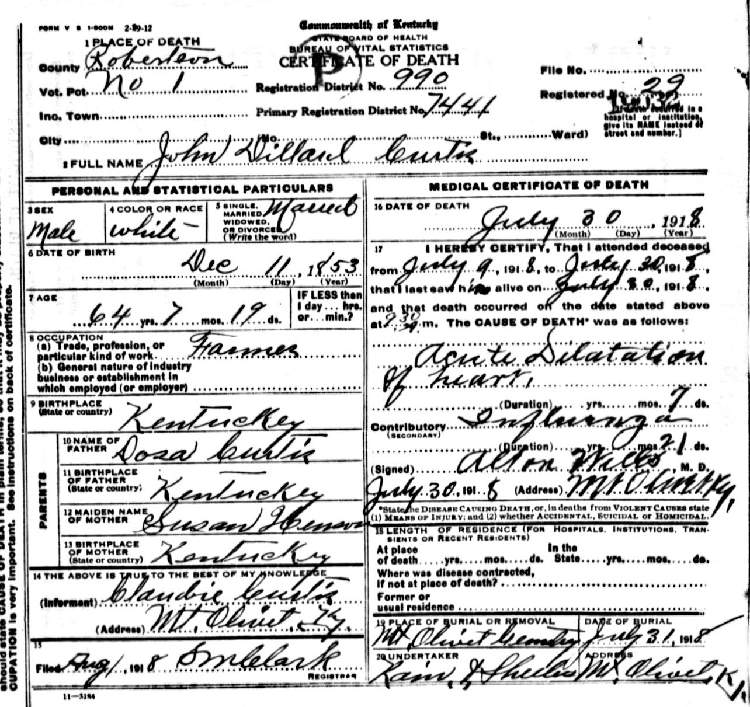 FORM V. S. 1-500M 2-29-12
Commonwealth of Kentucky
STATE BOARD OF HEALTH
BUREAU OF VITAL STATISTICS
CERTIFICATE OF DEATH
P
1 PLACE OF DEATH
County Robertson
Vot. Pct. No 1
Inc. Town
City
Registration District No. 990
Primary Registration District No. 7441
File No.
Registered No. 29
(No. St., Ward)
[If death occurred in a hospital or institution, give its NAME instead of street and number.]
2 FULL NAME John Dillard Curtis
PERSONAL AND STATISTICAL PARTICULARS
3 SEX Male
4 COLOR OR RACE White
5 SINGLE, MARRIED, WIDOWED, OR DIVORCED (Write the word) Married
6 DATE OF BIRTH Dec 11, 1853
(Month) (Day) (Year)
7 AGE 64 yrs. 7 mos. 19 ds.
IF LESS than 1 day... hrs. or... min.?
8 OCCUPATION
(a) Trade, profession, or particular kind of work Farmer
(b) General nature of industry
business or establishment in
which employed (or employer)
9 BIRTHPLACE (State or country) Kentuckey
PARENTS
10 NAME OF FATHER Dosa Curtis
11 BIRTHPLACE OF FATHER (State or country) Kentuckey
12 MAIDEN NAME OF MOTHER Susan Henson
13 BIRTHPLACE OF MOTHER (State or country) Kentuckey
14 THE ABOVE IS TRUE TO THE BEST OF MY KNOWLEDGE
(Informant) Claudie Curtis
(Address) Mt. Olivet Ky.
15
Filed Aug 1, 1918 S M Clark
REGISTRAR
11—3184
MEDICAL CERTIFICATE OF DEATH
16 DATE OF DEATH July 30, 1918
(Month) (Day) (Year)
17 I HEREBY CERTIFY, That I attended deceased
from July 9, 1918, to July 30, 1918,
that I last saw him alive on July 30, 1918,
and that death occurred on the date stated above
at m. The CAUSE OF DEATH* was as follows:
Acute Dilatation
of heart,
(Duration) yrs. mos. 7 ds.
Contributory (SECONDARY) Influenza
(Duration) yrs. mos. 21 ds.
(Signed) Alton Wills M. D.
July 30, 1918 (Address) Mt Olivet Ky,
*State the DISEASE CAUSING DEATH, or, in deaths from VIOLENT CAUSES state
(1) MEANS OF INJURY; and (2) whether ACCIDENTAL, SUICIDAL or HOMICIDAL.
18 LENGTH OF RESIDENCE (FOR HOSPITALS, INSTITUTIONS, TRANSIENTS OR RECENT RESIDENTS)
At place of death yrs. mos. ds. In the State yrs. mos. ds.
Where was disease contracted,
if not at place of death?
Former or
usual residence
19 PLACE OF BURIAL OR REMOVAL Mt. Olivet Cemetry
DATE OF BURIAL July 31, 1918
20 UNDERTAKER Rain & Sheelis
ADDRESS Mt. Olivet, Ky.
should state CAUSE OF DEATH in plain terms, so that it may be
CUPATION is very important. See instructions on back of certificate.